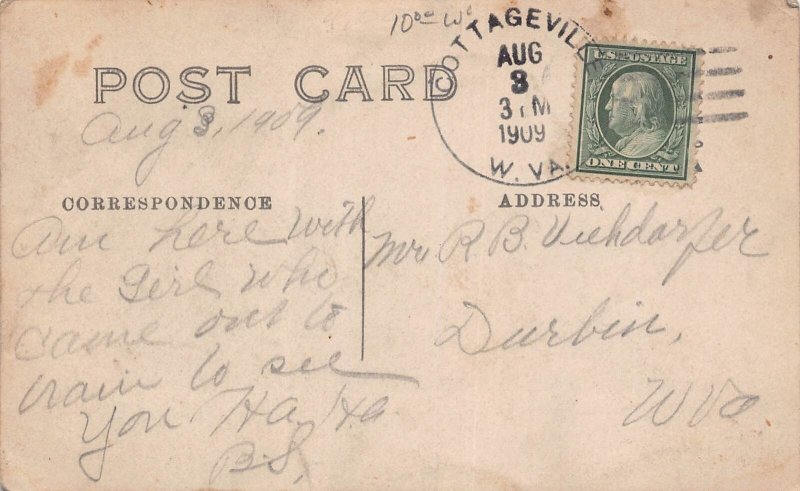 10⁰⁰ W⁰
COTTAGEVILLE
AUG
3
3 PM
1909
W. VA.
U.S. POSTAGE
ONE CENT
POST CARD
Aug 3, 1909.
CORRESPONDENCE
am here with
the Girl who
came out to
train to see
you Ha, Ha
B.S.
ADDRESS
Mr R. B. Viehdorfer
Durbin,
W Va